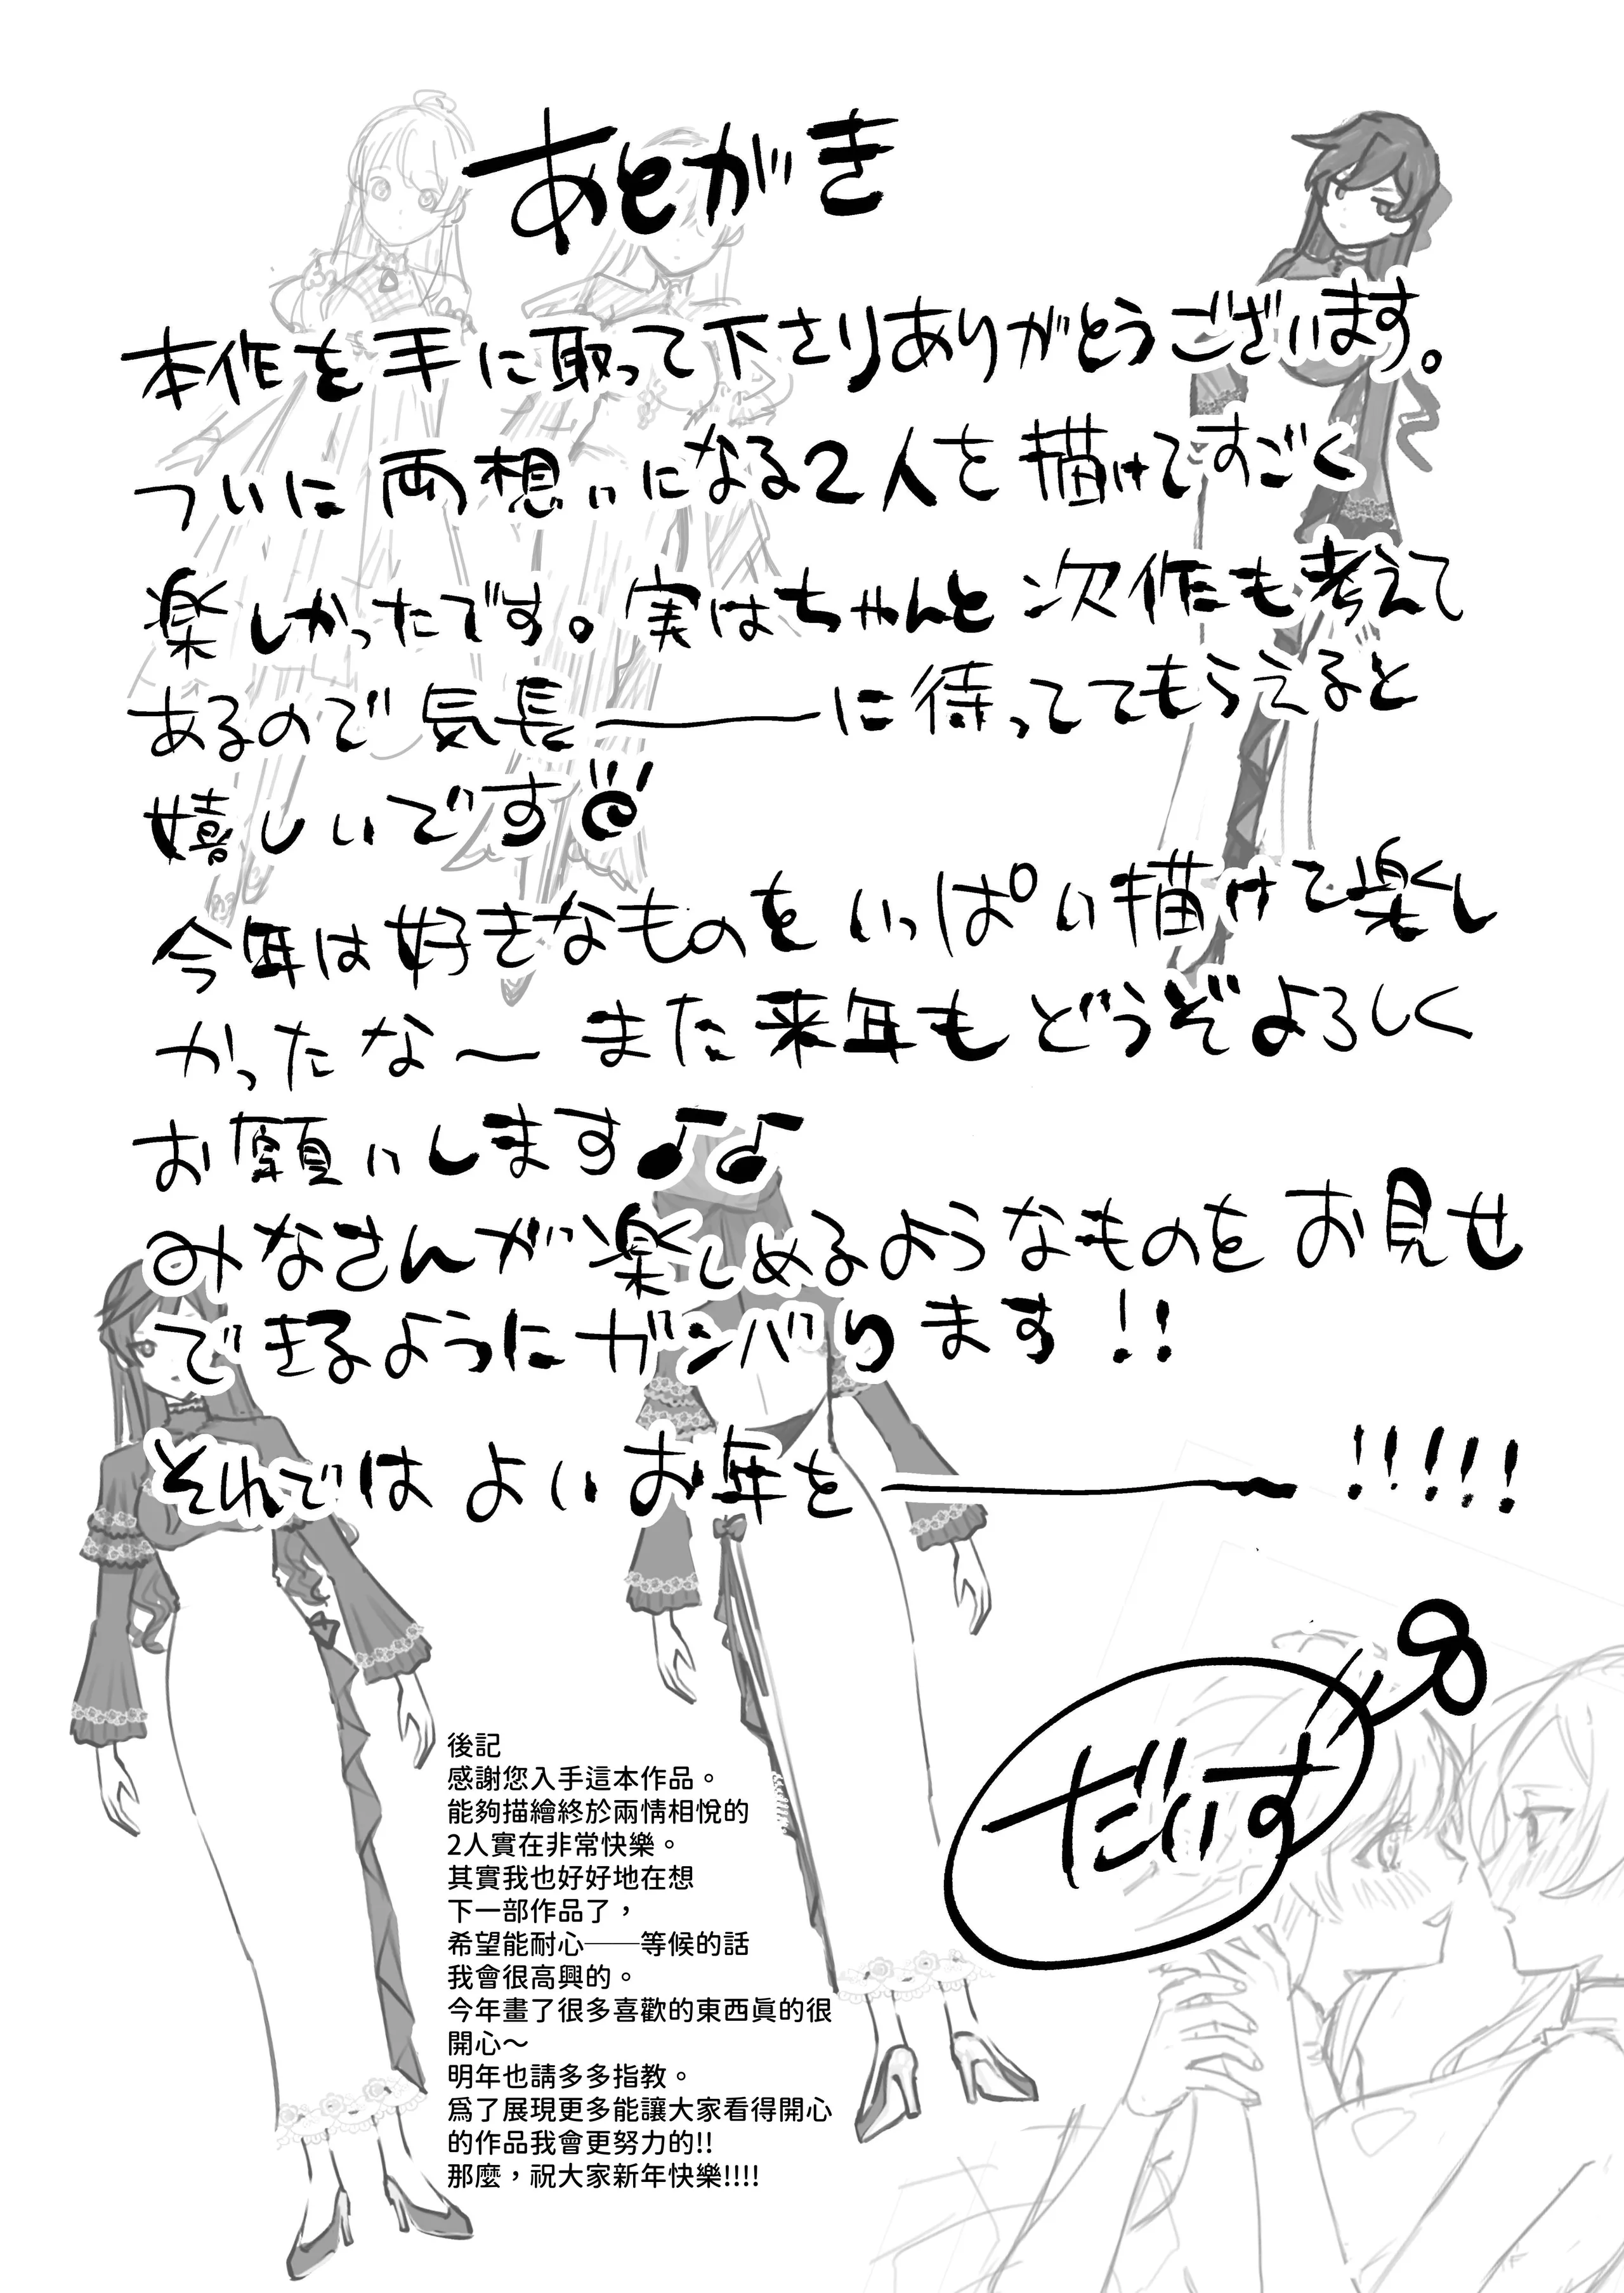 あとがき
本作を手に取って下さりありがとうございます。
ついに両想いになる2人を描けてすごく
楽しかったです。実はちゃんと次作も考えて
あるので気長――――に待っててもらえると
嬉しいです
今年は好きなものをいっぱい描けて楽し
かったな〜また来年もどうぞよろしく
お願いします♪♪
みなさんが楽しめるようなものをお見せ
できるようにガンバります!!
それではよいお年を――――――!!!!!
だいす
後記
感謝您入手這本作品。
能夠描繪終於兩情相悅的
2人實在非常快樂。
其實我也好好地在想
下一部作品了，
希望能耐心──等候的話
我會很高興的。
今年畫了很多喜歡的東西眞的很
開心～
明年也請多多指教。
爲了展現更多能讓大家看得開心
的作品我會更努力的!!
那麼，祝大家新年快樂!!!!